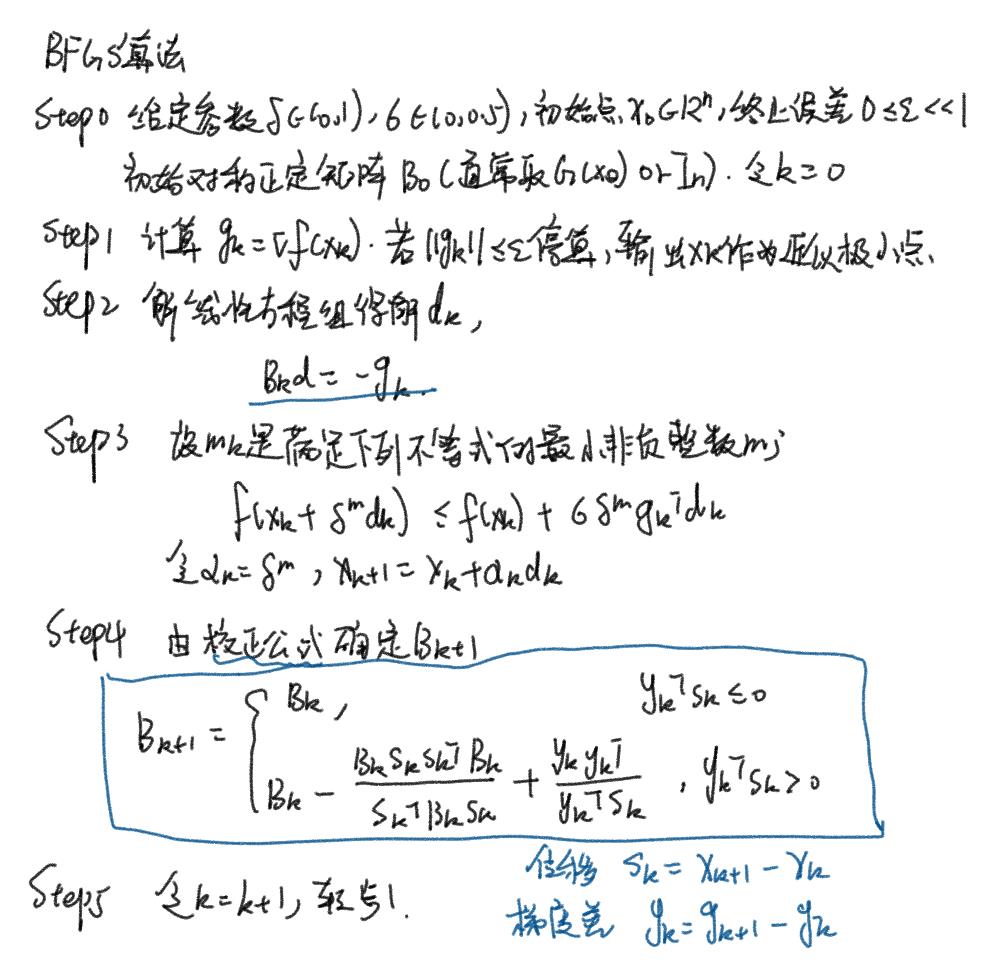 BFGS算法
Step0 给定参数 δ∈(0,1), σ∈(0,0.5), 初始点 x₀∈Rⁿ, 终止误差 0≤ε<<1
初始对称正定矩阵 B₀ (通常取G(x₀) or Iₙ). 令k=0
Step1 计算 gₖ=∇f(xₖ). 若 ||gₖ||≤ε停算, 输出xₖ作为近似极小点.
Step2 解线性方程组得解dₖ,
Bₖd = -gₖ.
Step3 设mₖ是满足下列不等式的最小非负整数m;
f(xₖ + δᵐdₖ) ≤ f(xₖ) + σδᵐgₖᵀdₖ
令αₖ=δᵐ, xₖ₊₁=xₖ+αₖdₖ
Step4 由校正公式确定Bₖ₊₁
Bₖ₊₁ = { Bₖ, yₖᵀsₖ≤0
Bₖ - (BₖsₖsₖᵀBₖ)/(sₖᵀBₖsₖ) + (yₖyₖᵀ)/(yₖᵀsₖ), yₖᵀsₖ>0
位移 sₖ = xₖ₊₁ - xₖ
Step5 令k=k+1, 转步1.
梯度差 yₖ=gₖ₊₁ - gₖ